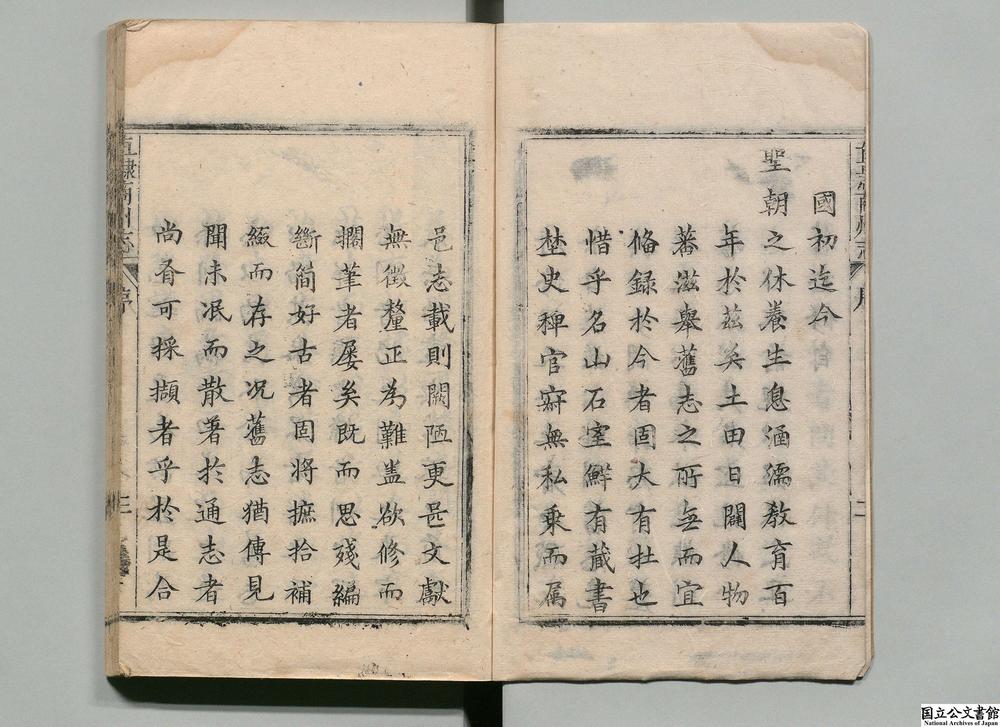 國初迄今
聖朝之休養生息涵濡教育百
年於茲矣土田日闢人物
蕃滋舉舊志之所無而宜
俻録於今者固大有在也
惜乎名山石室鮮有藏書
埜史稗官寂無私乘而属
邑志載則闕陋更甚文獻
無徵釐正為難盖欲修而
擱筆者屡矣既而思殘編
斷簡好古者固將摭拾補
綴而存之况舊志猶傳見
聞未泯而散著於通志者
尚有可採擷者乎於是合
直隸商州志
序
三
国立公文書館
National Archives of Japan